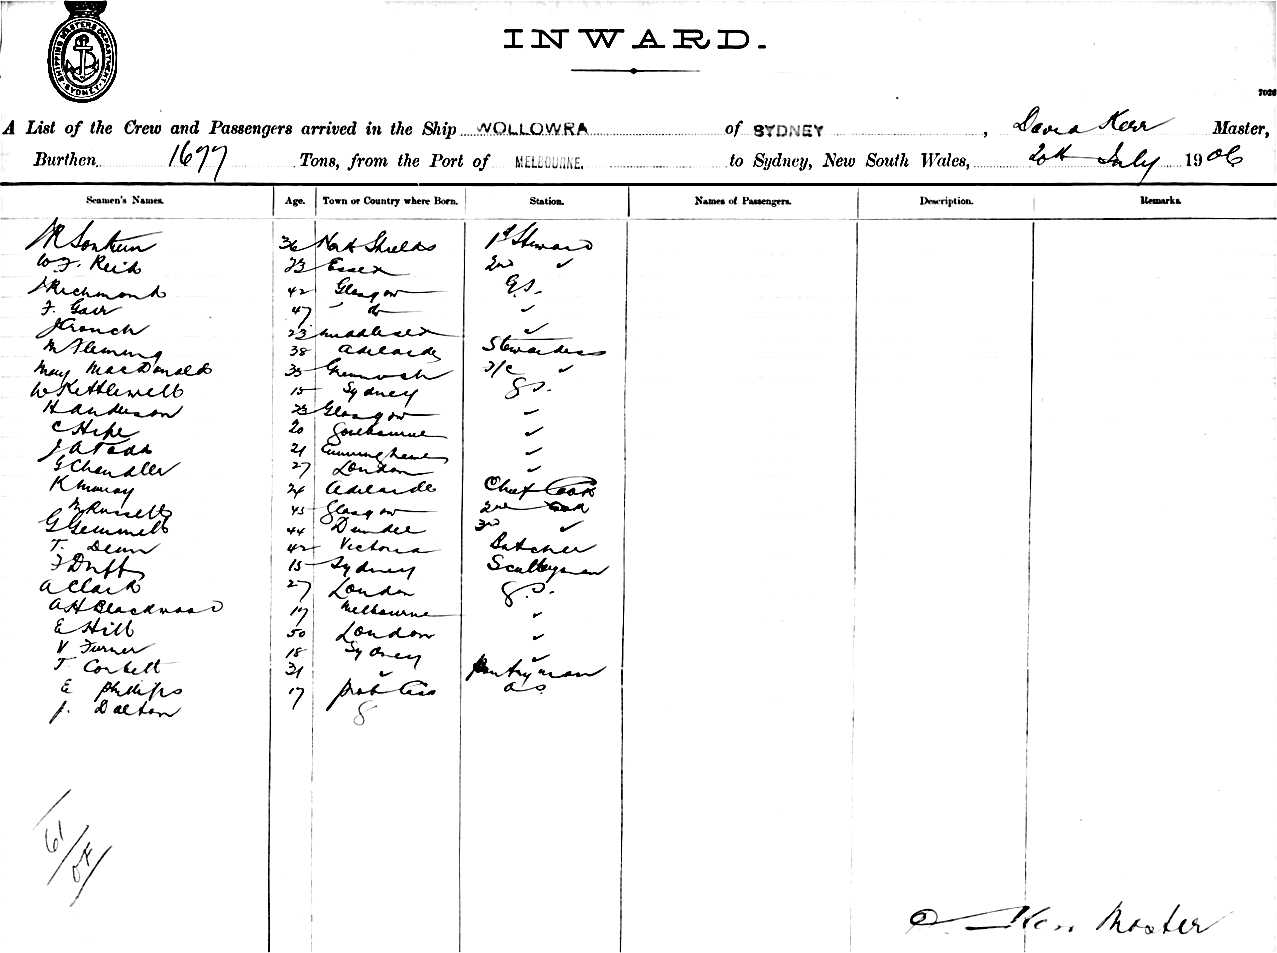 SHIPPING MASTERS DEPARTMENT SYDNEY
INWARD.
7026
A List of the Crew and Passengers arrived in the Ship WOLLOWRA of SYDNEY, David Kerr Master,
Burthen 1677 Tons, from the Port of MELBOURNE. to Sydney, New South Wales, 20th July 1906
Seamen's Names. Age. Town or Country where Born. Station. Names of Passengers. Description. Remarks.
36 North Shields 1st Steward
W. J. Reid 23 Essex 2nd ✓
J Richmond 42 Glasgow G.S.
F. Gair 47 do ✓
J Crouch 23 Middlesex ✓
M Fleming 38 Adelaide Stewardess
May MacDonald 33 Greenock ✓
W Kettlewell 15 Sydney G.S.
H Anderson 23 Glasgow ✓
C Hipe 20 ✓
J A Todd 21 ✓
G Chandler 27 London ✓
K Murray 24 Adelaide Chief Cook
M Russell 45 Glasgow 2nd Cook
G Gemmell 44 Dundee 3rd ✓
T. Dean 42 Victoria Butcher
F Duffy 15 Sydney Sculleryman
A Clark 27 London G.S.
A H Blackwood 17 Melbourne ✓
E Hill 50 London ✓
V Turner 18 Sydney ✓
T Corbett 31 ✓ Pantryman
E Phillips 17
J. Dalton
61/04
D Kerr Master